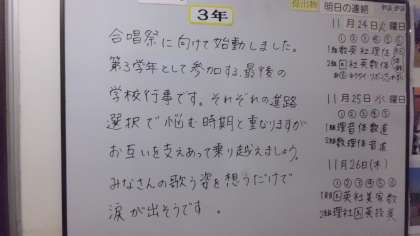 3年
合唱祭に向けて始動しました。
第3学年として参加する最後の
学校行事です。それぞれの進路
選択で悩む時期と重なりますが
お互いを支えあって乗り越えましょう。
みなさんの歌う姿を想うだけで
涙が出そうです。
提出物
明日の連絡
11月24日火曜日
①②③④⑤⑥
11月25日水曜日
①②③④⑤⑥
1組理音体数道
2組数理体音道
11月26日(木)
①②③④⑤⑥